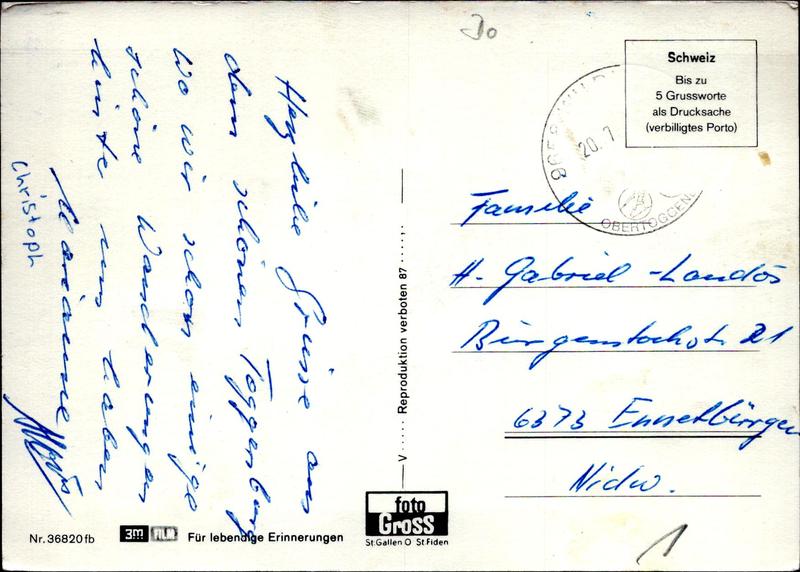 Herzliche Grüsse aus
dem schönen Toggenburg
wo wir schon einige
schöne Wanderungen
hinter uns haben
Marianne
Christoph
30
Schweiz
Bis zu
5 Grussworte
als Drucksache
(verbilligtes Porto)
20.7
OBERTOGGENB
Familie
H. Gabriel - Landós
Bürgenstockstr. 21
6373 Ennetbürgen
Nidw.
1
V ····· Reproduktion verboten 87 ·····
Nr. 36820 fb
3m FILM
Für lebendige Erinnerungen
foto
Gross
St.Gallen O St.Fiden